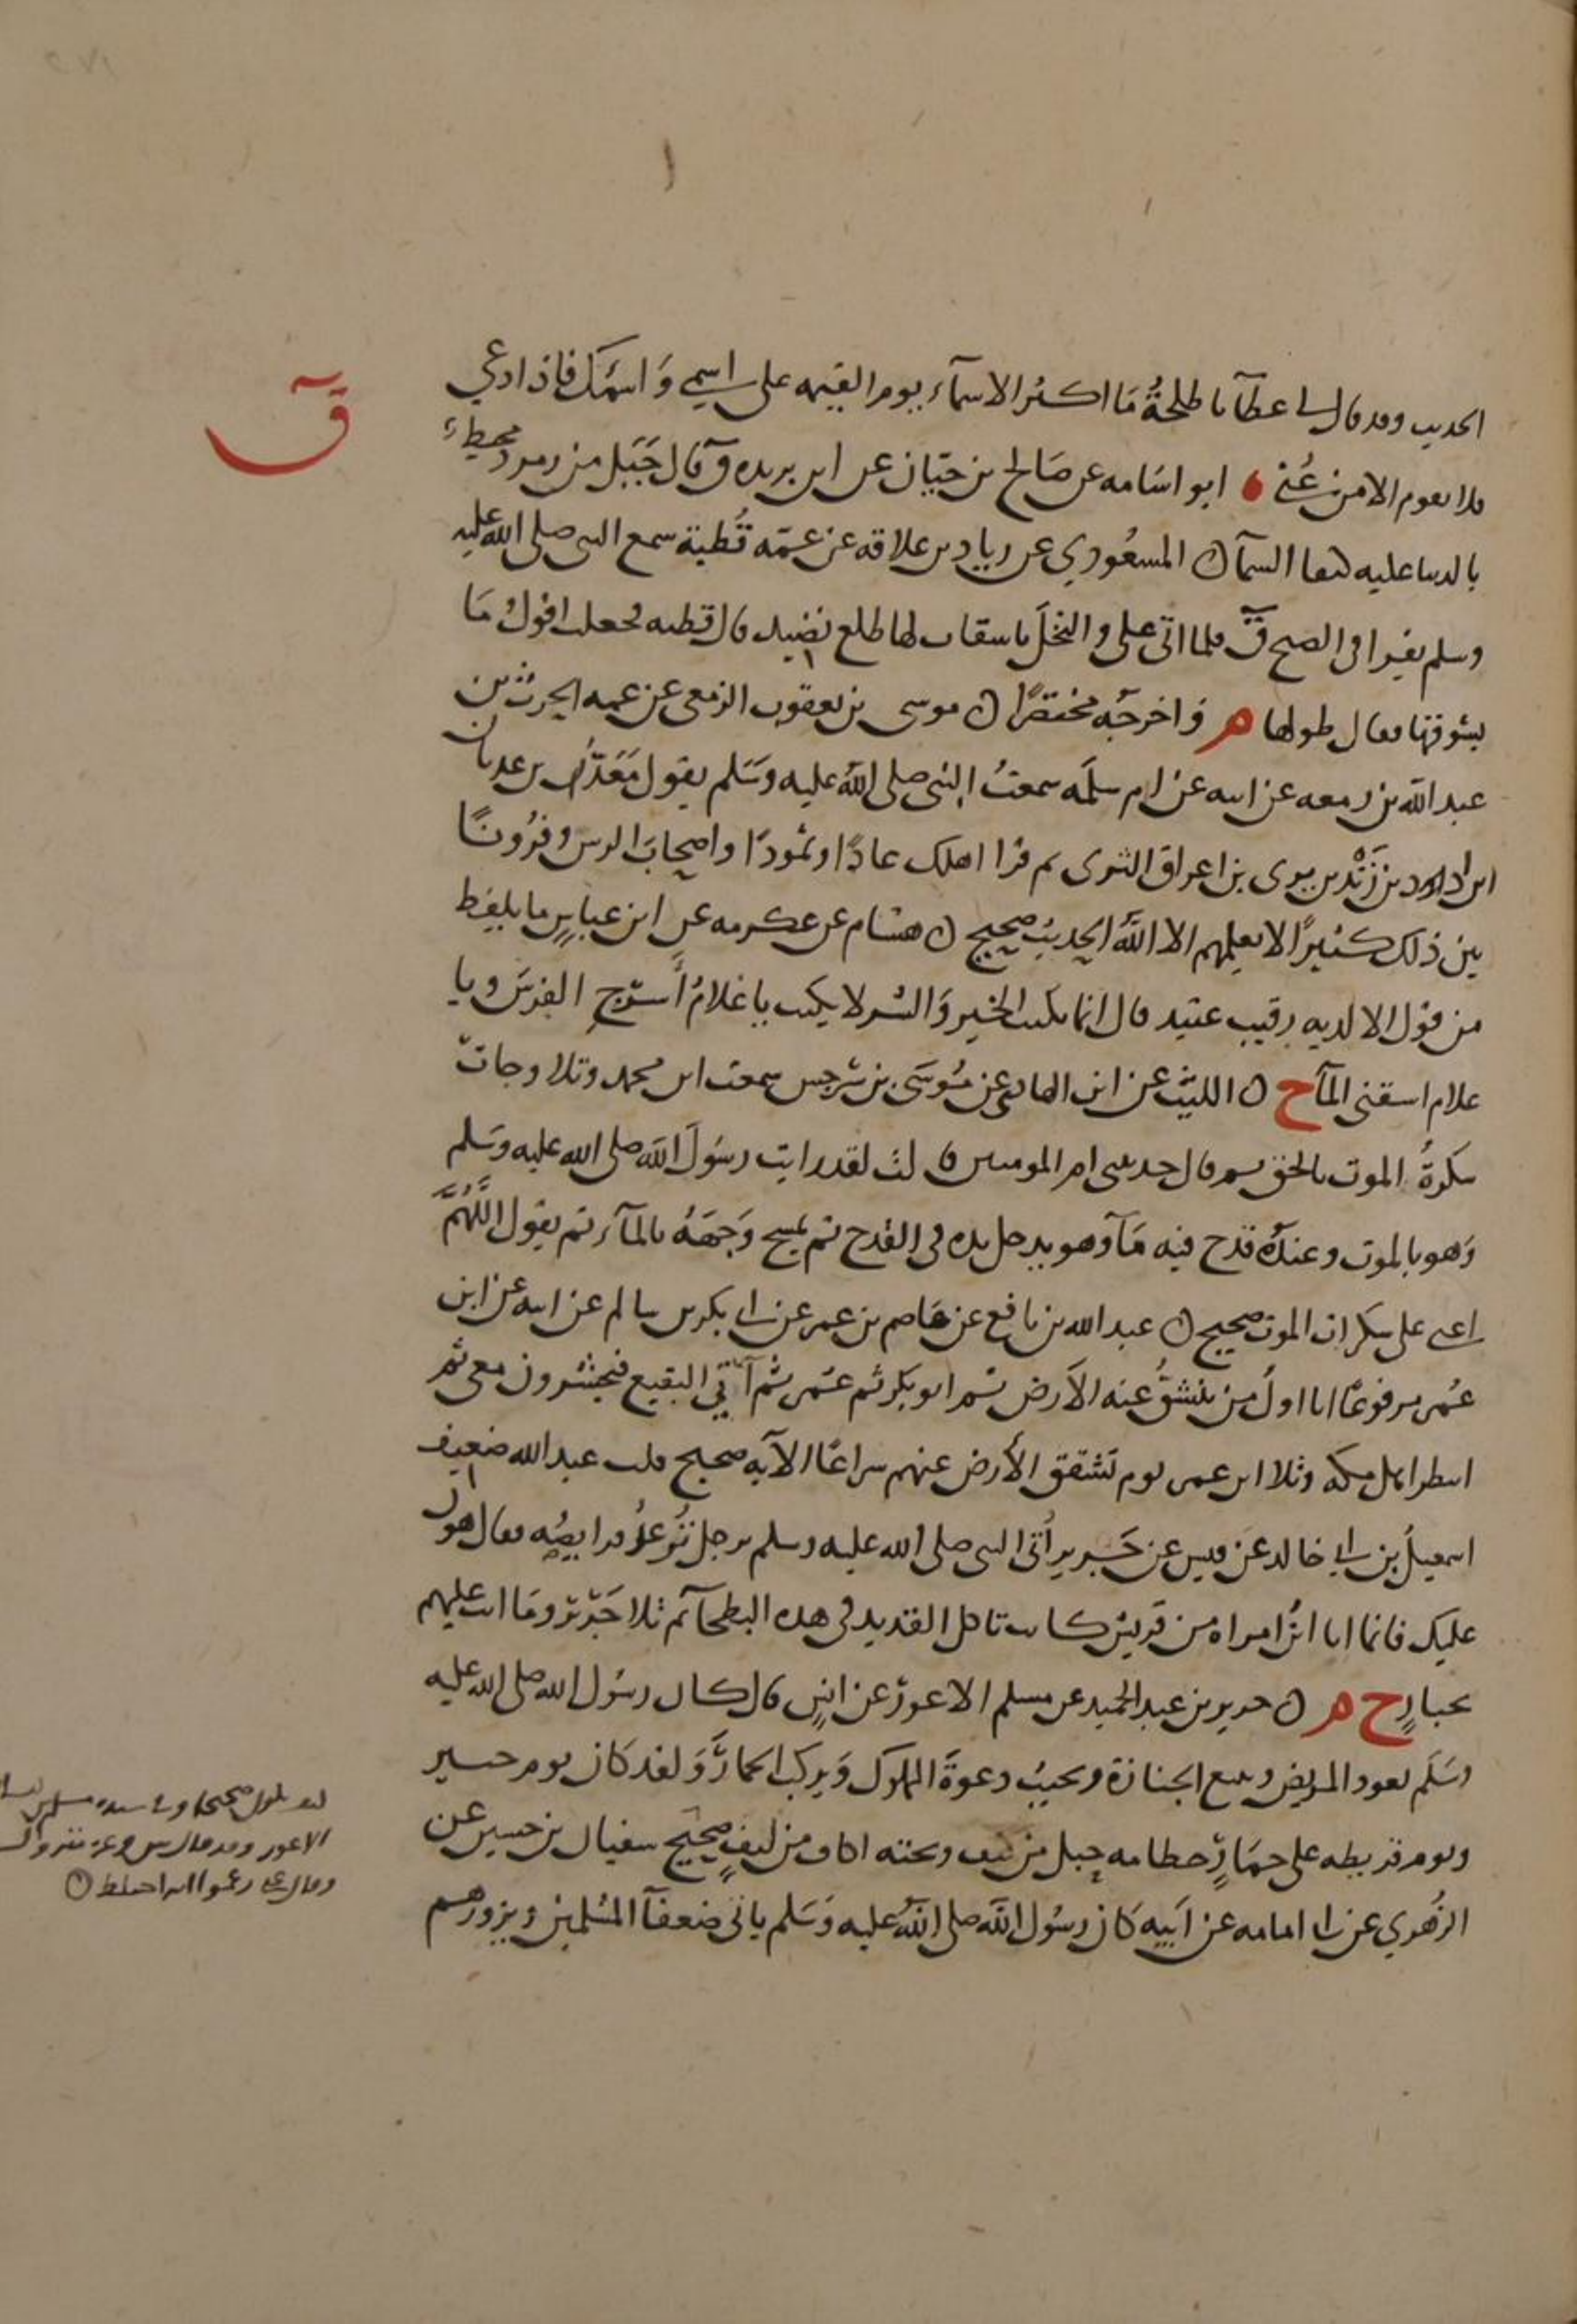 ق
الحديث وقد قال لي عطاء يا طلحة ما اكثر الاسماء يوم القيمه على اسمي واسمك فاذا دعي
فلا يقوم الا من عني ابو اسامه عن صالح بن حيان عن ابن بريده ق قال جبل من زمرد محيط
بالدنيا عليه كنفا السماء ن المسعودي عن زياد بن علاقه عن عمه قطبة سمع النبي صلى الله عليه
وسلم يقرا في الصبح ق فلما اتى على والنخل باسقات لها طلع نضيد قال قطبه فجعلت اقول ما
بسوقها فقال طولها م واخرجه مختصرا ن موسى بن يعقوب الزمعي عن عمه الحرث بن
عبد الله بن زمعه عن ابيه عن ام سلمه سمعت النبي صلى الله عليه وسلم يقول معد بن عدنان
ابن ادد بن زند بن يرى بن اعراق الثرى ثم قرا اهلك عادا وثمودا واصحاب الرس وقرونا
بين ذلك كثيرا لا يعلمهم الا الله الحديث صحيح ن هشام عن عكرمه عن ابن عباس ما يلفظ
من قول الا لديه رقيب عتيد قال انما يكتب الخير والشر لا يكتب يا غلام أسرج الفرس ويا
غلام اسقني الماء خ ن الليث عن ابن الهاد عن موسى بن سرجس سمعت ابن محمد وتلا وجات
سكرة الموت بالحق ثم قال حدثتني ام المومنين قالت لقد رايت رسول الله صلى الله عليه وسلم
وهو بالموت وعنده قدح فيه ماء وهو يدخل يده في القدح ثم يمسح وجهه بالماء ثم يقول اللهم
اعني على سكرات الموت صحيح ن عبد الله بن نافع عن عاصم بن عمر عن ابي بكر بن سالم عن ابيه عن ابن
عمر مرفوعا انا اول من تنشق عنه الارض ثم ابو بكر ثم عمر ثم آتي البقيع فيحشرون معي ثم
انتظر اهل مكه وتلا ابن عمر يوم تشقق الأرض عنهم سراعا الآيه صحيح قلت عبد الله ضعيف
اسمعيل بن ابي خالد عن قيس عن جرير أتى النبي صلى الله عليه وسلم برجل ترعد فرايصه فقال هون
عليك فانما انا ابن امراه من قريش كانت تاكل القديد في هذه البطحاء ثم تلا جرير وما انت عليهم
بجبار خ م ن جرير بن عبد الحميد عن مسلم الاعور عن انس قال كان رسول الله صلى الله عليه
وسلم يعود المريض ويتبع الجنازة ويجيب دعوة المملوك ويركب الحمار ولقد كان يوم خيبر
ويوم قريظه على حمار خطامه حبل من ليف وتحته اكاف من ليف صحيح سفيان بن حسين عن
الزهوي عن ابي امامه عن ابيه كان رسول الله صلى الله عليه وسلم ياتي ضعفاء المسلمين ويزورهم
الاعور